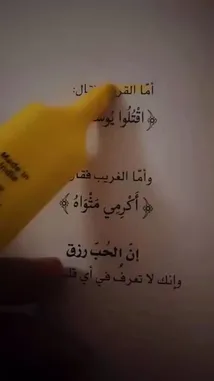 أمّا القر قال:
﴿ اقْتُلُوا يُوسـ
وأمّا الغريب فقا
﴿ أَكْرِمِي مَثْوَاهُ ﴾
إنّ الحُبّ رزق
وإنك لا تعرفُ في أي قلـ
Made in